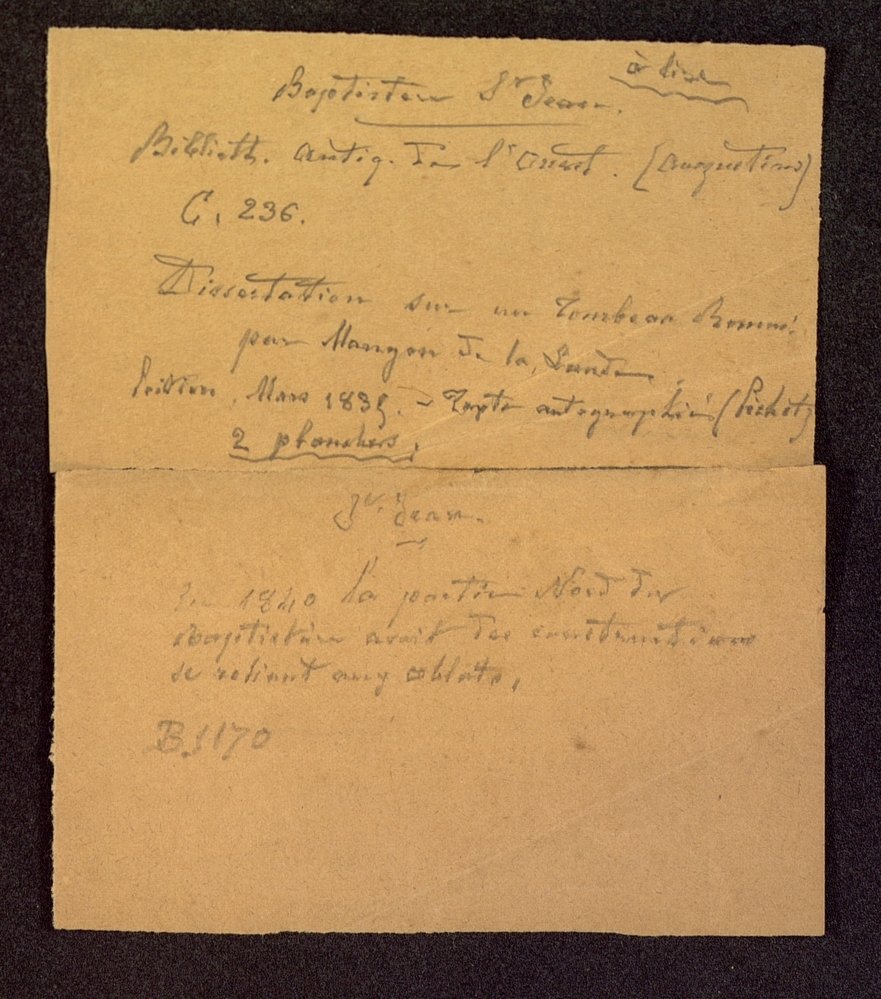 à lire
Baptistère St Jean.
Biblioth. antiq. de l'Ouest. (Augustins)
C. 236.
Dissertation sur un Tombeau Romain
par Mangon de la Lande
Poitiers, Mars 1835. - Texte autographié (Pichot)
2 planches.
St. Jean.
En 1840 la partie Nord du
Baptistère avait des constructions
se reliant aux oblats,
B 5170